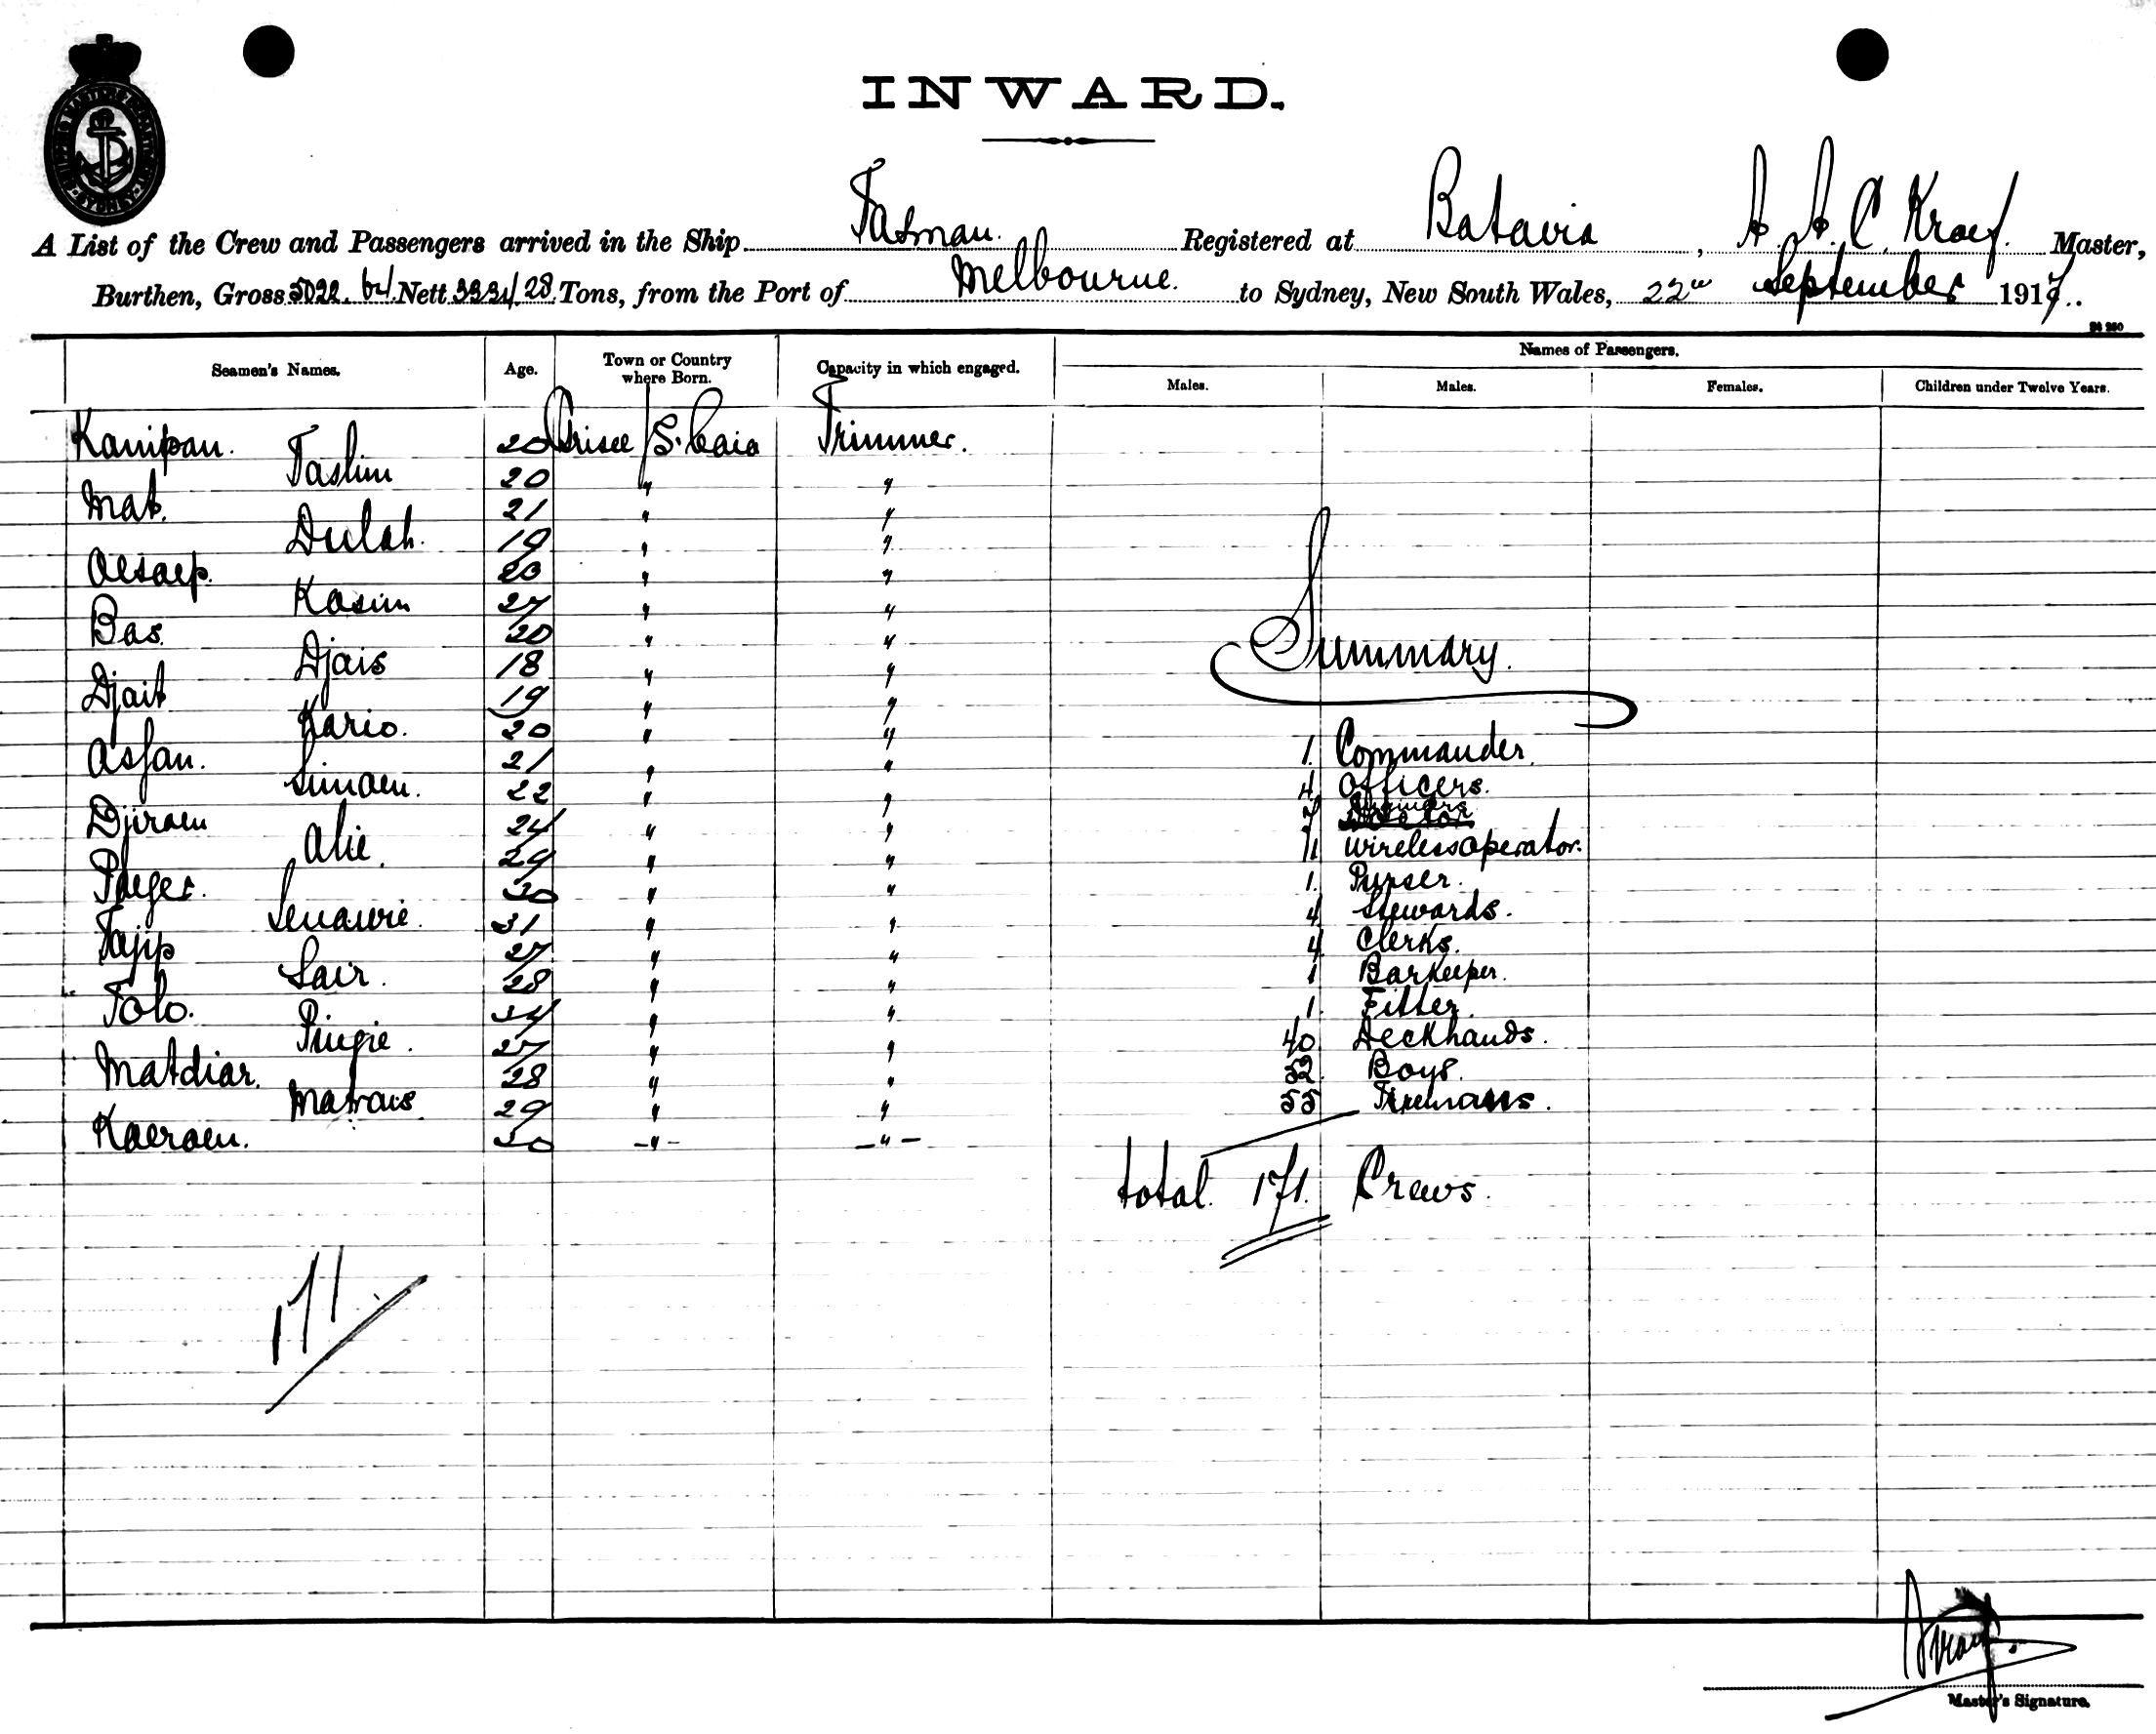 INWARD.
A List of the Crew and Passengers arrived in the Ship Tasman. Registered at Batavia, A. A. C. Kraef. Master,
Burthen, Gross 5022.64 Nett 3334/28 Tons, from the Port of Melbourne. to Sydney, New South Wales, 22nd September 1917.
Names of Passengers.
Seamen's Names. Age. Town or Country where Born. Capacity in which engaged. Males. Males. Females. Children under Twelve Years.
Kanipan. 20 Grisee / S. baia Trimmer.
Taslim 20 " "
Mat. 21 " "
Dulah. 19 " "
Oesaep. 20 " "
Kasim 27 " "
Bas. 20 " "
Djais 18 " "
Djait 19 " "
Kario. 20 " "
Asfan. 21 " "
Simoen. 22 " "
Djiraen 24 " "
Alie. 29 " "
Paeger. 30 " "
Senawie. 31 " "
Tajip 27 " "
Sair. 28 " "
Tolo. 34 " "
Piegie. 27 " "
Matdiar. 28 " "
Matrais 29 " "
Kaeraen. 30 -"- -"-
Summary.
1. Commander.
4 Officers.
7
1 Wirelessoperator.
1. Purser.
4 Stewards.
4 Clerks.
1 Barkeeper.
1. Fitter.
40 Deckhands.
52 Boys.
55 Firemans.
total. 171. Crews.
171
Master's Signature.